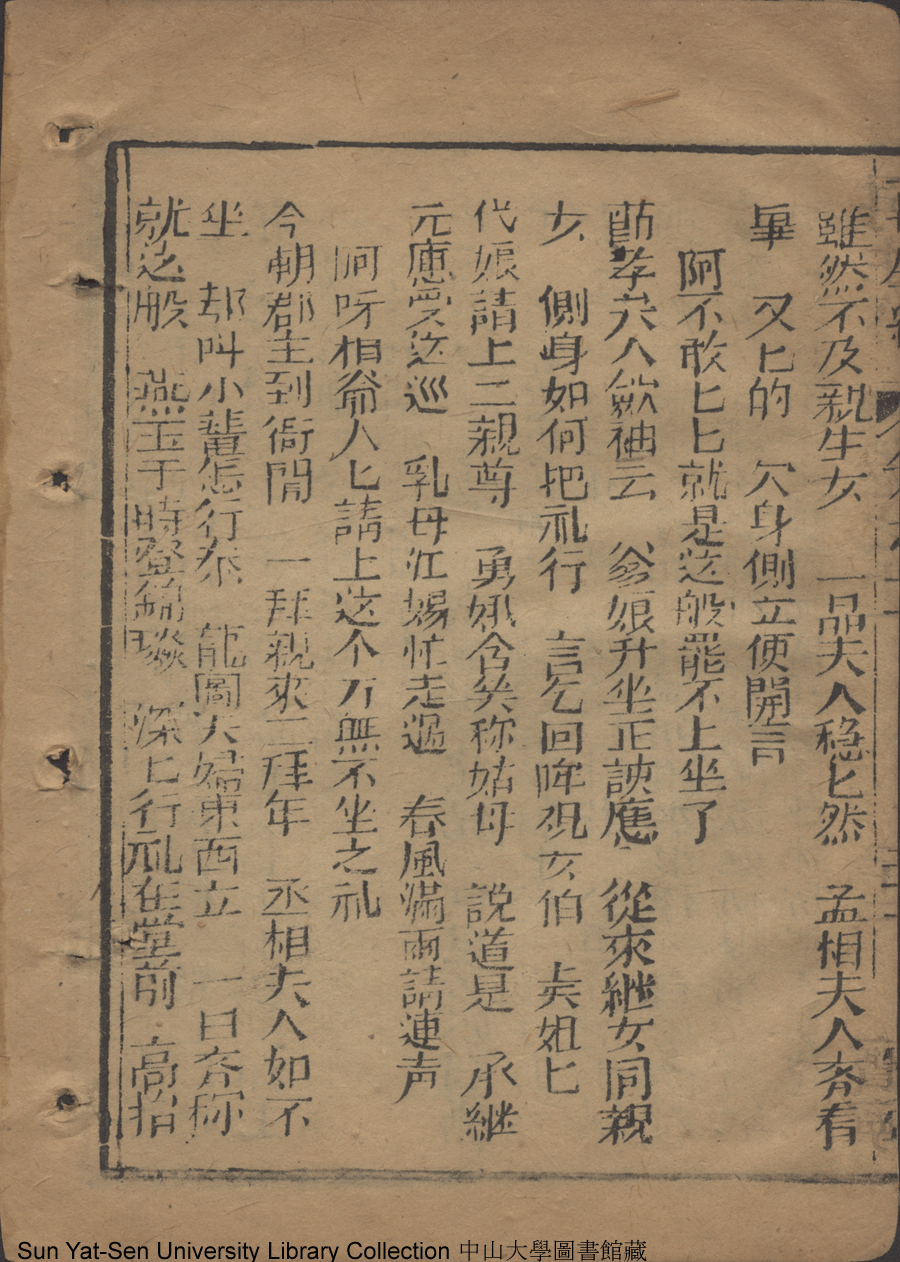 雖然不及親生女　一品夫人稳匕然　孟相夫人夯看
畢　又匕的　欠身側立便開言
阿不敢匕匕就是这般罷不上坐了
節孝夫人歛袖云　爹娘升坐正該應　從來継女同親
女　側身如何把礼行　言乞回眸祝女伯　姐匕
代娘請上二親尊　勇娥含笑称姑母　說道是　承継
元應受这巡　乳母江媽忙走過　春風滿面請連声
阿呀相爺人匕請上这个万無不坐之礼
今朝郡主到衙間　一拜親來二拜年　丞相夫人如不
坐　却叫小輩怎行泰　龍圖夫婦東西立　一日夯称
就这般　燕玉于時登錦　深匕行礼在堂前　高抬
Sun Yat-Sen University Library Collection 中山大學圖書館藏